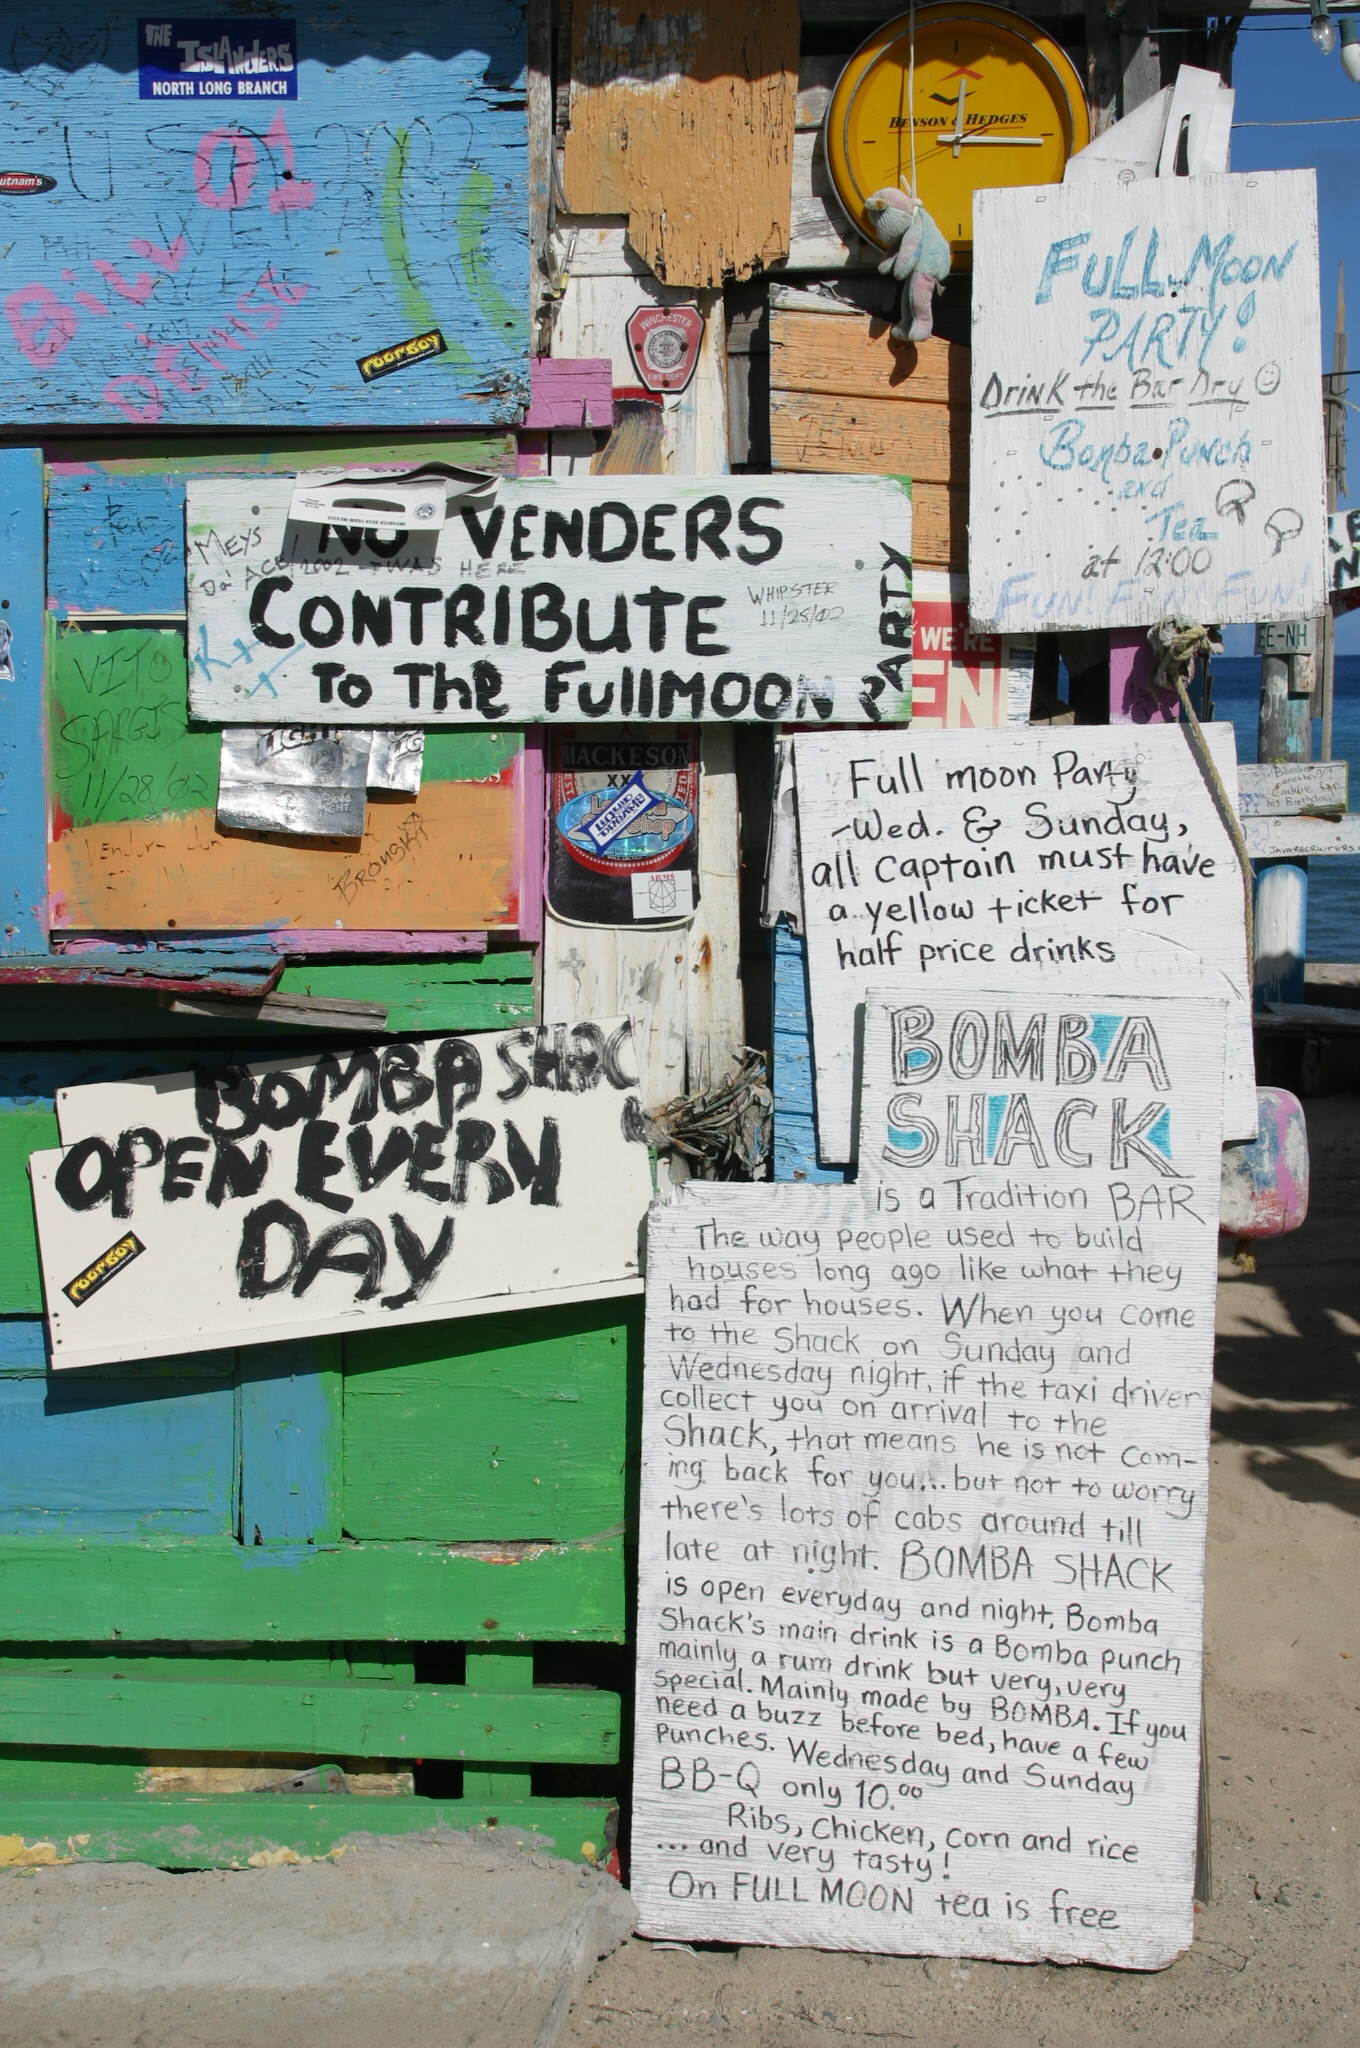 THE
ISLANDERS
NORTH LONG BRANCH
utnam's
01
BILL
DENISE
roorboy
BENSON & HEDGES
WINCHESTER
FIRE DEPT.
FULL MOON
PARTY!
Drink the Bar Dry
Bomba Punch
and
Tea
at 12:00
FUN! FUN FUN!
NO VENDERS
CONTRIBUTE
To THE FullMOON PARTY
MEYS
Da' ACE! 2002 - TWAS HERE
WHIPSTER
11/28/02
K+
T
WE'RE
EN
EE-NH
VITO
SARGIS
11/28/02
LIGHT
BRONSKI
MACKESON
XX
LIQUID
Full moon Party
~Wed. & Sunday,
all Captain must have
a yellow ticket for
half price drinks
Bomba
another
Caddie for
his Birthday!
JAVARECRUITERS.
BOMBA SHAC
K
OPEN EVERY
DAY
roorboy
BOMBA
SHACK
is a Tradition BAR
The way people used to build
houses long ago like what they
had for houses. When you come
to the Shack on Sunday and
Wednesday night, if the taxi driver
collect you on arrival to the
Shack, that means he is not com-
ing back for you... but not to worry
there's lots of cabs around till
late at night. BOMBA SHACK
is open everyday and night, Bomba
Shack's main drink is a Bomba punch
mainly a rum drink but very, very
special. Mainly made by BOMBA. If you
need a buzz before bed, have a few
Punches. Wednesday and Sunday
BB-Q only 10.00
Ribs, Chicken, Corn and rice
... and very tasty!
On FULL MOON tea is free